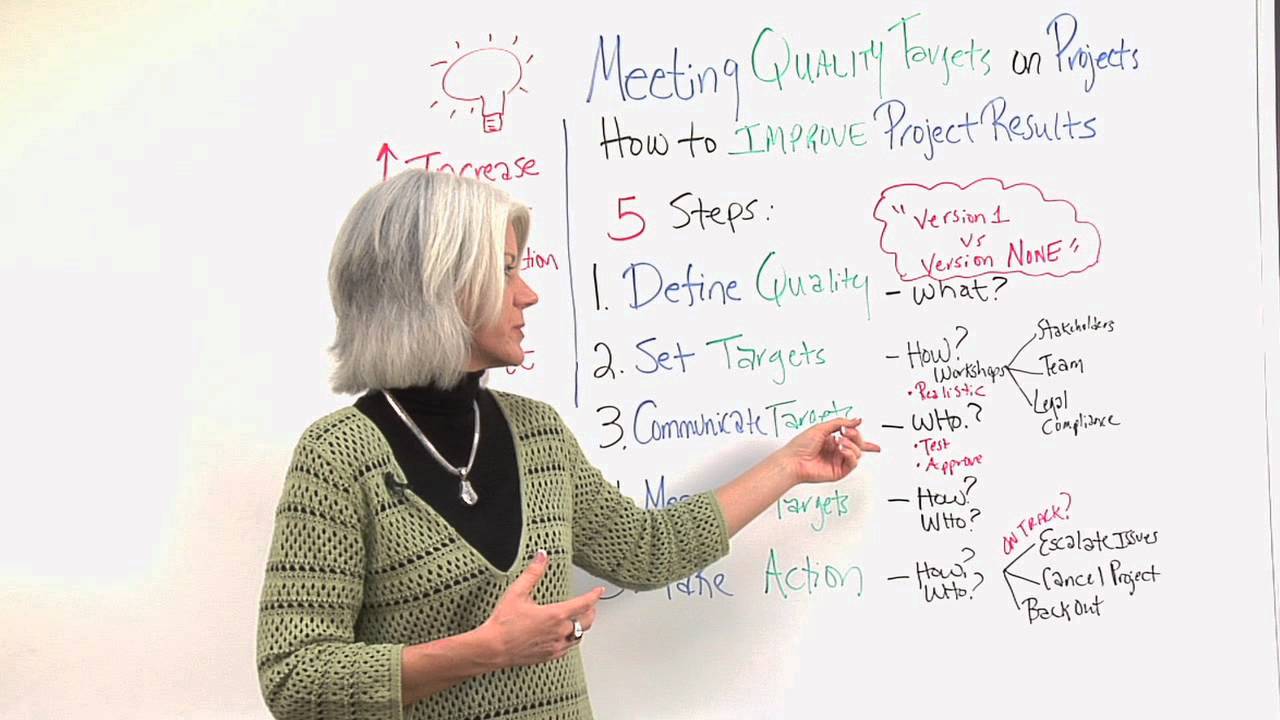 Meeting QUALITY Targets on Projects
How to IMPROVE Project Results
↑ Increase
5 Steps:
"Version 1
vs
Version NONE"
1. Define Quality - What?
2. Set Targets - How?
Workshops
• Realistic
Stakeholders
Team
Legal
Compliance
3. Communicate Targets - WHO?
• Test
• Approve
Targets - How?
WHO?
Take Action - How?
WHO?
ON TRACK?
Escalate Issues
Cancel Project
Back Out